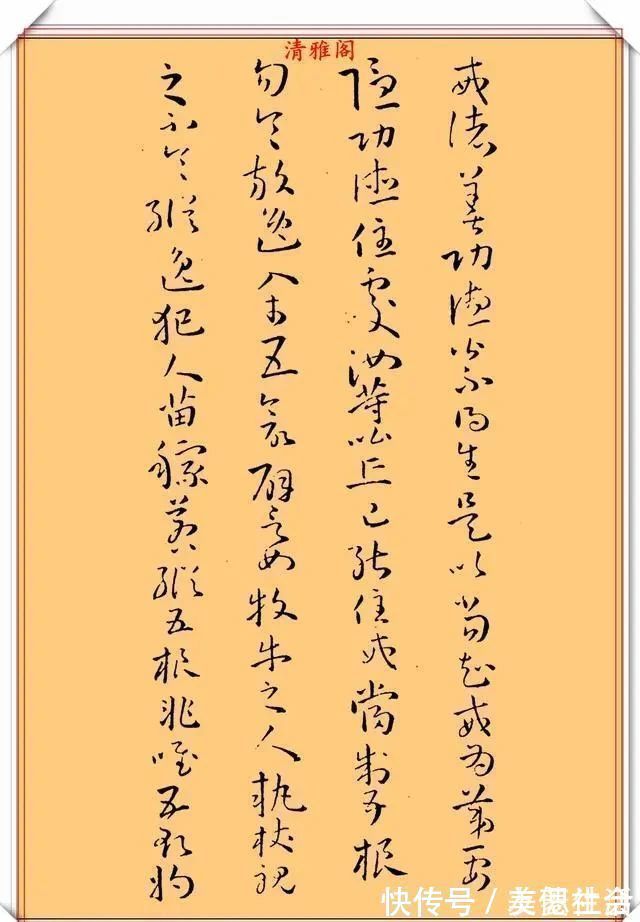 清雅阁
戒諸善功德皆不得生是以當知戒為第一安
隱功德住處汝等比丘已能住戒當制五根
勿令放逸入於五欲譬如牧牛之人執杖視
之不令縱逸犯人苗稼若縱五根非唯五欲將
快传号 /